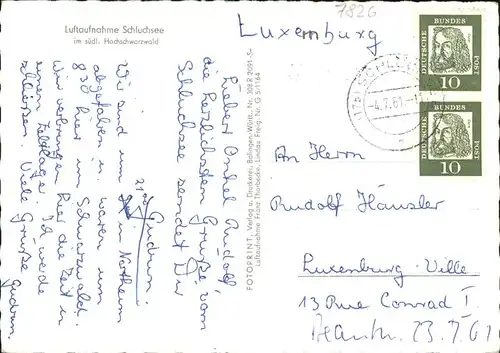 Luftaufnahme Schluchsee
im südl. Hochschwarzwald
7826
Luxemburg
DEUTSCHE BUNDES POST
10
DEUTSCHE BUNDES POST
10
-4.7.61.-
Lieber Onkel Rudolf,
die herzlichsten Grüße vom
Schluchsee sendet Dir
Gudrun.
Wir sind um 21 in Northeim
abgefahren u. waren um
8 30 hier im Schwarzwald.
Wir verbringen hier die Zeit in
einem Zeltlager. Ich werde
schließen. Viele Grüße
Gudrun
FOTOPRINT, Verlag u. Druckerei, Balingen-Württ. Nr. 308 R 2091-5-
Luftaufnahme Franz Thorbecke, Lindau Freig. Nr. G 5/1164
An Herrn
Rudolf Häusler
Luxemburg-Ville
13 Rue Conrad I.
Beantw. 23.7.61